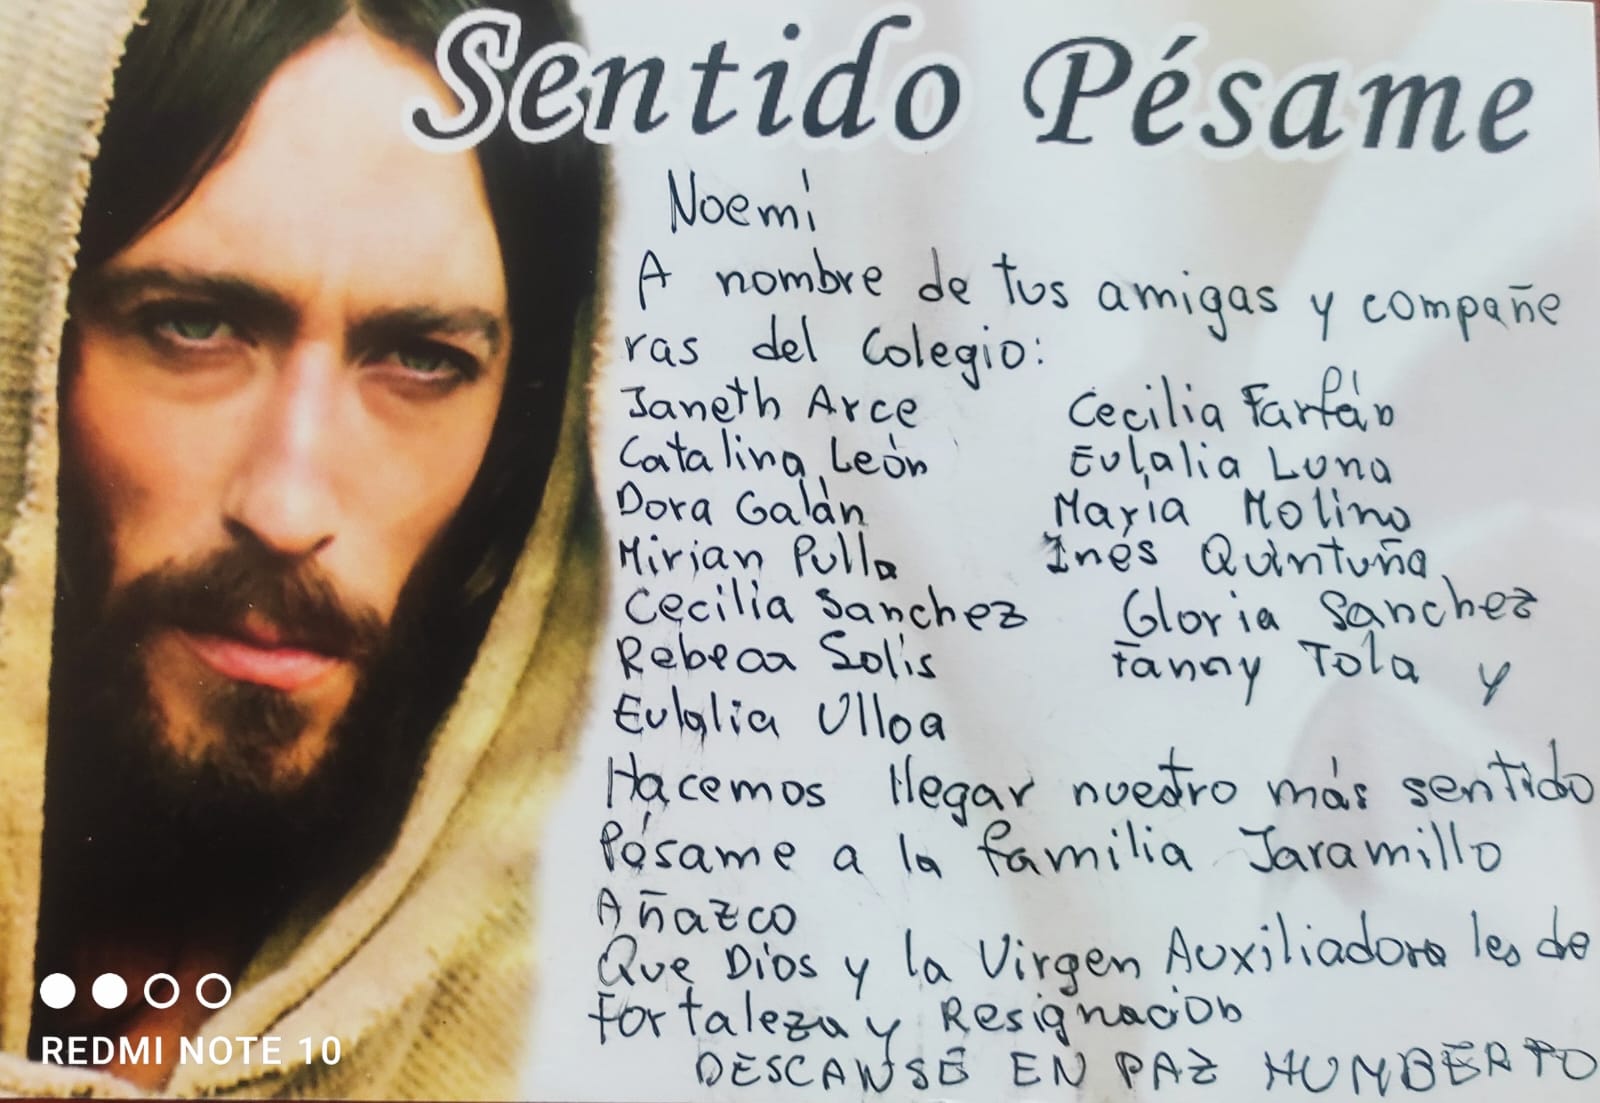 Sentido Pésame
Noemi
A nombre de tus amigas y compañe
ras del Colegio:
Janeth Arce Cecilia Farfán
Catalina León Eulalia Luna
Dora Galán María Molina
Mirian Pulla Inés Quintuña
Cecilia Sanchez Gloria Sanchez
Rebeca Solís Fanny Tola y
Eulalia Ulloa
Hacemos llegar nuestro más sentido
Pésame a la familia Jaramillo
Añazco
Que Dios y la Virgen Auxiliadora les de
Fortaleza y Resignación
DESCANSE EN PAZ HUMBERTO
REDMI NOTE 10